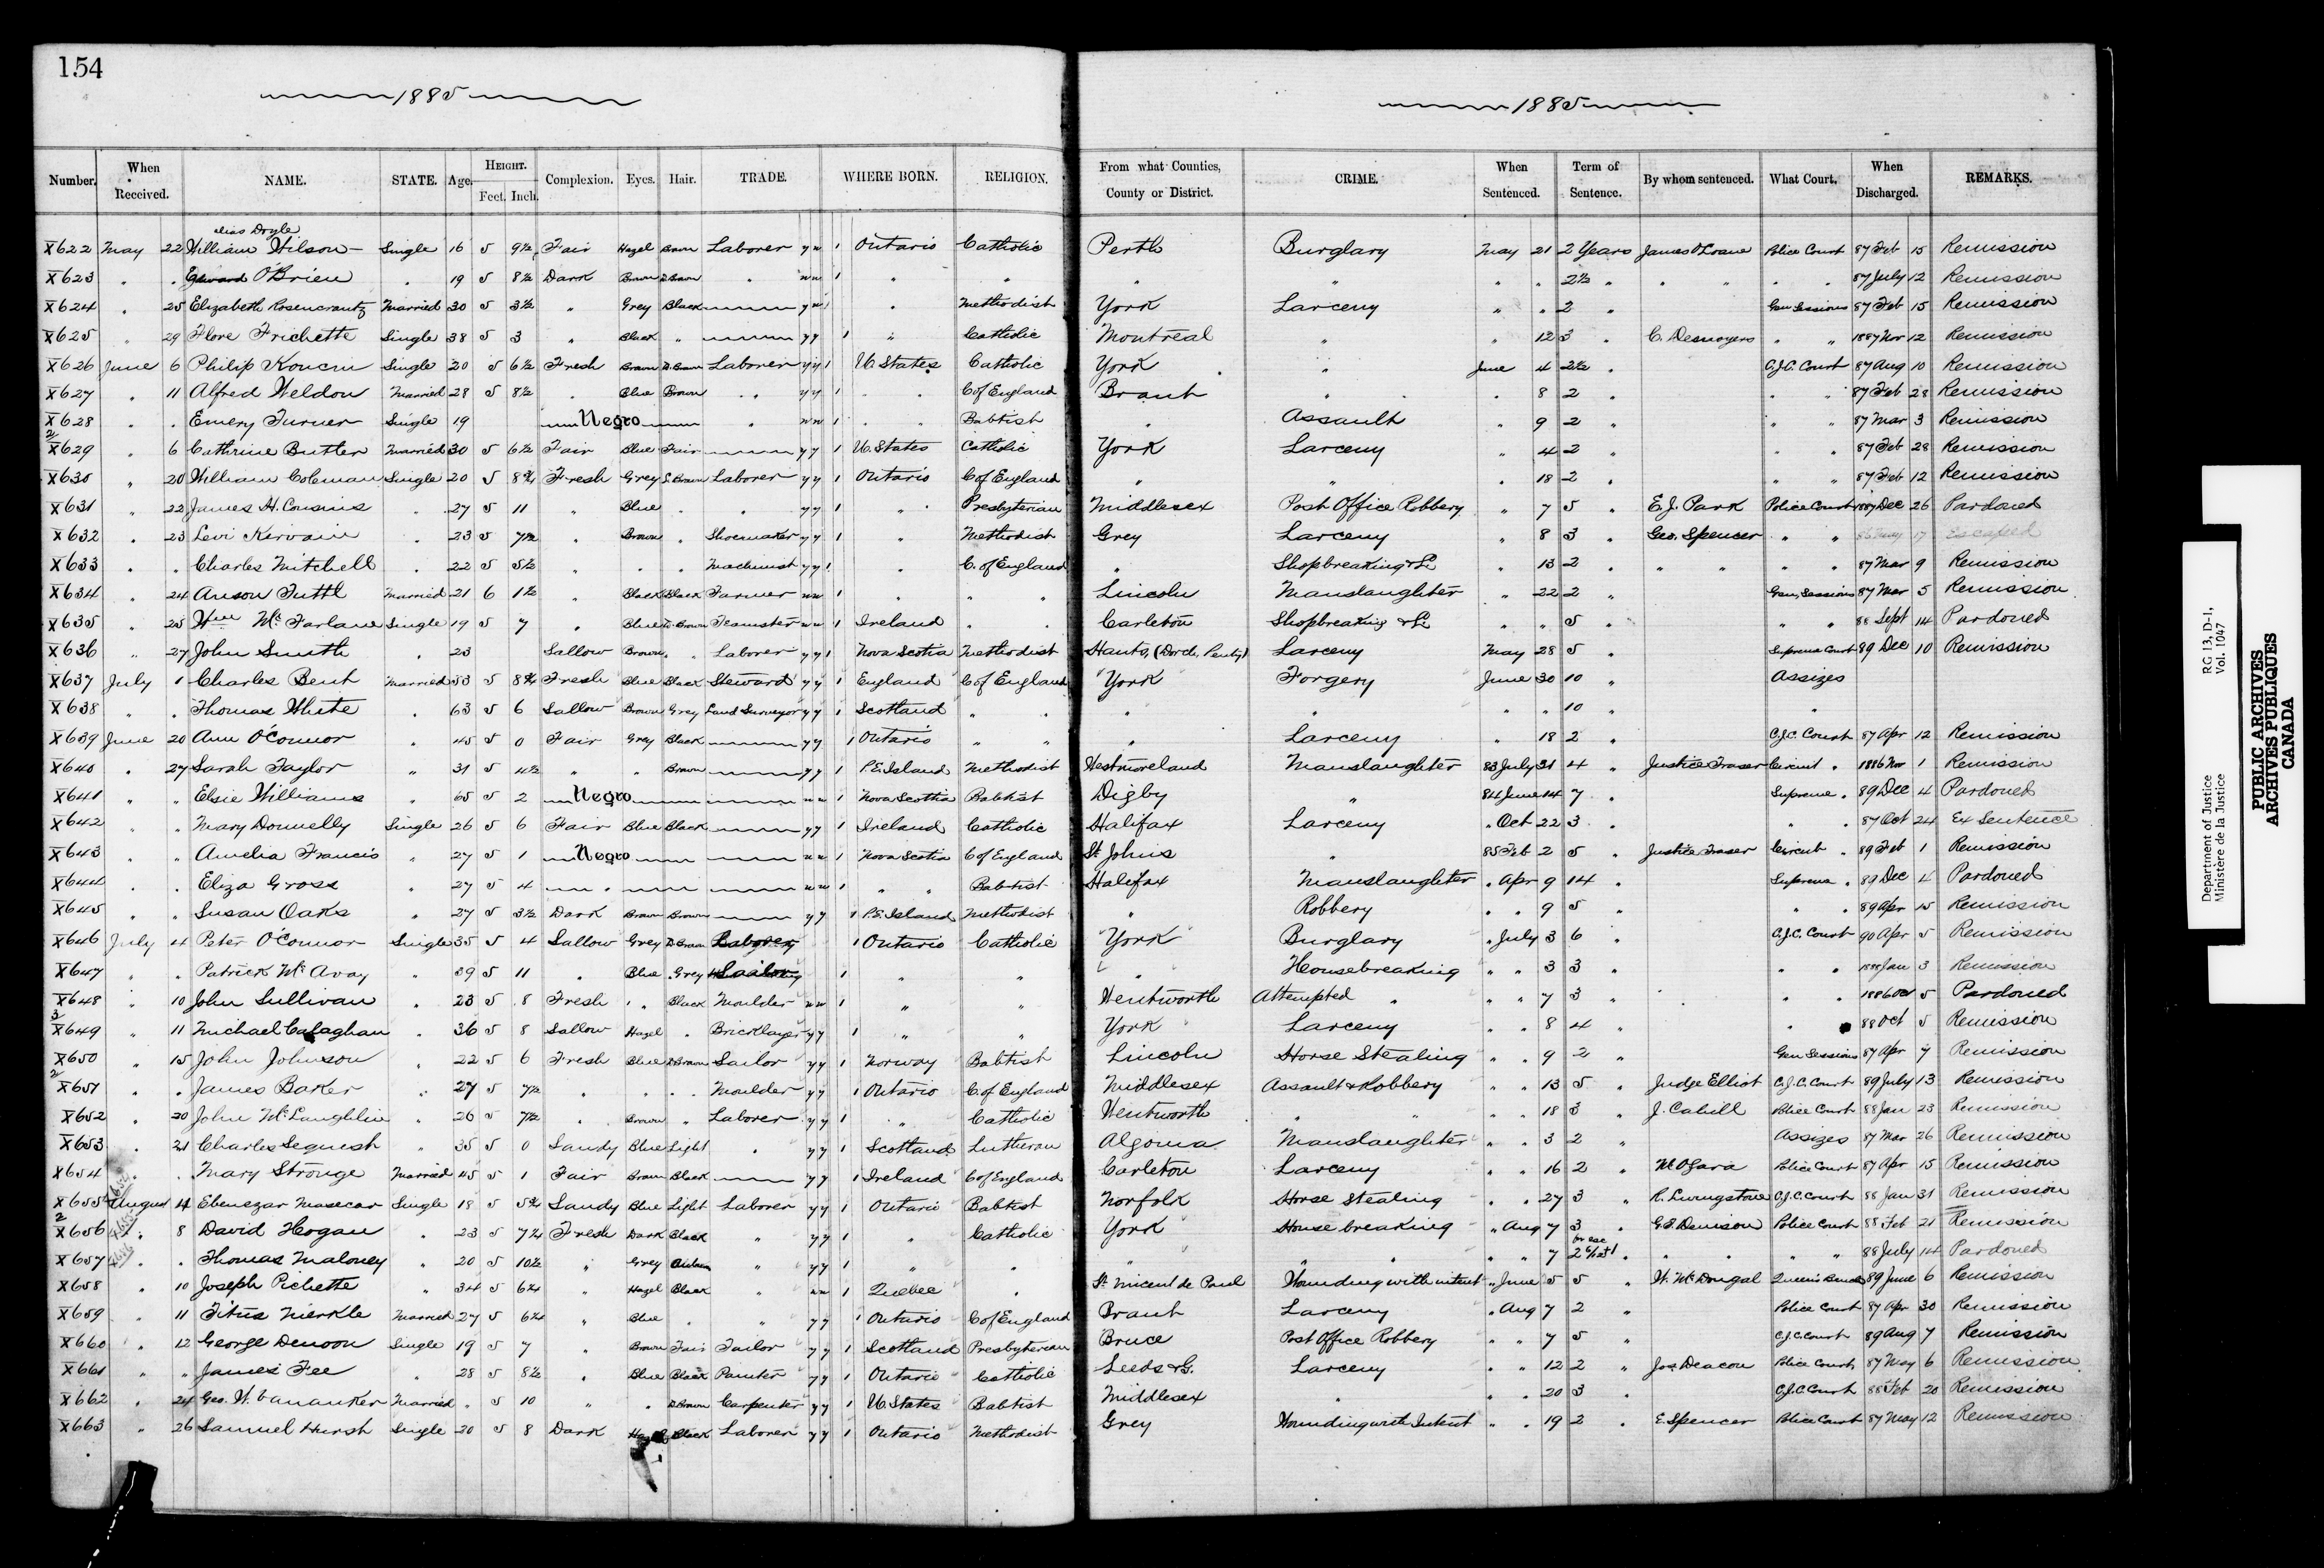 154
1885
1885
Number. When Received. NAME. STATE. Age. HEIGHT. Feet. Inch. Complexion. Eyes. Hair. TRADE. WHERE BORN. RELIGION. From what Counties, County or District. CRIME. When Sentenced. Term of Sentence. By whom sentenced. What Court. When Discharged. REMARKS.
alias Doyle
X622 May 22 William Wilson Single 16 5 9½ Fair Hazel Brown Laborer y n 1 Ontario Catholic Perth Burglary May 21 2 Years James O'Loane Police Court 87 Feb 15 Remission
X623 " . Edward O'Brien . 19 5 8½ Dark Brown D. Brown . n n 1 " " " " " . 2½ " " " " " 87 July 12 Remission
X624 . 25 Elizabeth Rosencrantz Married 30 5 3½ " Grey Black y n 1 . Methodist York Larceny " . 2 " Gen Sessions 87 Feb 15 Remission
X625 " 29 Flore Frichette Single 38 5 3 " Black " y y 1 " Catholic Montreal " " 12 3 . C. Desnoyers . " 1887 Nov 12 Remission
X626 June 6 Philip Single 20 5 6½ Fresh Brown D. Brown Laborer y y 1 U. States Catholic York " June 4 2½ . C.J.C. Court 87 Aug 10 Remission
X627 . 11 Alfred Weldon Married 28 5 8½ . Blue Brown . . y y 1 . . C of England Brant " . 8 2 . " " 87 Feb 28 Remission
X628 . . Emery Turner Single 19 Negro . n n 1 . . Babtist . Assault " 9 2 " " " 87 Mar 3 Remission
2
X629 " 6 Cathrine Butler Married 30 5 6½ Fair Blue Fair y y 1 U. States Catholic York Larceny " 4 2 " . . 87 Feb 28 Remission
X630 " 20 William Coleman Single 20 5 8¾ Fresh Grey L. Brown Laborer y y 1 Ontario C of England " " . 18 2 . " . 87 Feb 12 Remission
X631 " 22 James H. Cousins . 27 5 11 " Blue . . y y 1 " . Presbyterian Middlesex Post Office Robbery " 7 5 . E.J. Park Police Court 1887 Dec 26 Pardoned
X632 . 23 Levi Kirvain . 23 5 7½ " Brown . Shoemaker y y 1 " Methodist Grey Larceny " 8 3 . Geo. Spencer " " 86 May 17 Escaped
X633 . . Charles Mitchell . 22 5 5½ " . . Machinist y y 1 . C. of England " Shopbreaking & L " 13 2 . " " " . 87 Mar 9 Remission
X634 . 24 Anson Tuttl Married 21 6 1½ " Black Black Farmer n n 1 " " " Lincoln Manslaughter " 22 2 " Gen. Sessions 87 Mar 5 Remission
X635 " 25 Wm McFarlane Single 19 5 7 . Blue D. Brown Teamster n n 1 Ireland . . Carleton Shopbreaking & L " " 5 . " . 88 Sept 14 Pardoned
X636 " 27 John Smith . 23 Sallow Brown . " Laborer y y 1 Nova Scotia Methodist Hants, (Dorch. Penty) Larceny May 28 5 . Supreme Court 89 Dec 10 Remission
X637 July 1 Charles Bent Married 53 5 8¾ Fresh Blue Black Steward y y 1 England C of England York Forgery June 30 10 " Assizes
X638 " . Thomas White . 63 5 6 Sallow Brown Grey Land Surveyor y y 1 Scotland " . . . " . 10 " "
X639 June 20 Ann O'Connor . 45 5 0 Fair Grey Black y y 1 Ontario " " . Larceny " 18 2 . C.J.C. Court 87 Apr 12 Remission
X640 . 27 Sarah Taylor " 31 5 4½ " " Brown y y 1 P.E. Island Methodist Westmoreland Manslaughter 83 July 31 4 " Justice Fraser Circuit . 1886 Nov 1 Remission
X641 " " Elsie Williams . 65 5 2 Negro n n 1 Nova Scothia Babtist Digby " 84 June 14 7 . Supreme . 89 Dec 4 Pardoned
X642 " " Mary Donnelly Single 26 5 6 Fair Blue Black y y 1 Ireland Catholic Halifax Larceny " Oct 22 3 . " . 87 Oct 24 Ex Sentence
X643 " " Amelia Francis " 27 5 1 Negro n n 1 Nova Scotia C of England St. Johns " 85 Feb 2 5 . Justice Fraser Circuit . 89 Feb 1 Remission
X644 " . Eliza Gross " 27 5 4 . n n 1 " " Babtist Halifax Manslaughter . Apr 9 14 . Supreme . 89 Dec 4 Pardoned
X645 . . Susan Oaks . 27 5 3½ Dark Brown Brown y y 1 P.E. Island Methodist . Robbery . . 9 5 " " . 89 Apr 15 Remission
X646 July 4 Peter O'Connor Single 35 5 4 Sallow Grey D. Brown Laborer 1 Ontario Catholic York Burglary . July 3 6 " C.J.C. Court 90 Apr 5 Remission
X647 " . Patrick McAvay " 39 5 11 " Blue . Grey 1 " " " Housebreaking " " 3 3 " " . 1888 Jan 3 Remission
X648 " 10 John Sullivan . 23 5 8 Fresh " . Black Moulder n n 1 " " Wentworth Attempted " " " 7 3 " . . 1886 5 Pardoned
3
X649 " 11 Michael Calaghan . 36 5 8 Sallow Hazel . Bricklayer y y 1 " " York Larceny " . 8 4 " . 88 Oct 5 Remission
X650 . 15 John Johnson . 22 5 6 Fresh Blue D. Brown Sailor y y 1 Norway Babtist Lincoln Horse Stealing " . 9 2 " Gen Sessions 87 Apr 7 Remission
2
X651 . . James Baker " 27 5 7½ . . . . Moulder y y 1 Ontario C. of England Middlesex Assault & Robbery " . 13 5 . Judge Elliot C.J.C. Court 89 July 13 Remission
X652 . 20 John McLaughlin . 26 5 7½ . Brown " Laborer y y 1 " Catholic Wentworth " " " . 18 3 " J. Cahill Police Court 88 Jan 23 Remission
X653 . 21 Charles Sequesh " 35 5 0 Sandy Blue Light . y y 1 Scotland Lutheran Algoma Manslaughter " . 3 2 " Assizes 87 Mar 26 Remission
X654 . . Mary Strouge Married 45 5 1 Fair Brown Black y y 1 Ireland C of England Carleton Larceny " . 16 2 . M. O'Gara Police Court 87 Apr 15 Remission
X655 August 4 Ebenezar Masecar Single 18 5 5¾ Sandy Blue Light Laborer y y 1 Ontario Babtist Norfolk Horse Stealing . . 27 3 " R. Livingstone C.J.C. Court 88 Jan 31 Remission
2
X656 . 8 David Hogan . 23 5 7¼ Fresh Dark Black " y y 1 " Catholic York House breaking " Aug 7 3 G.T. Denison Police Court 88 Feb 21 Remission
X657 . . Thomas Maloney " 20 5 10½ " Grey " y y 1 " . " " " " 7 2 . . . " " 88 July 14 Pardoned
X658 . 10 Joseph Pichette " 34 5 6¼ " Hazel Black " n n 1 Quebec . St. Vincent de Paul Wounding with intent " June 5 5 " W. McDougal Queens Bench 89 June 6 Remission
X659 " 11 Titus Nierkle Married 27 5 6¼ " Blue . " y y 1 Ontario C of England Brant Larceny . Aug 7 2 " Police Court 87 Apr 30 Remission
X660 . 12 George Denoon Single 19 5 7 " Brown Fair Tailor y y 1 Scotland Presbyterian Bruce Post Office Robbery " " 7 5 " C.J.C. Court 89 Aug 7 Remission
X661 " " James Fee " 28 5 8½ . Blue Black Painter y y 1 Ontario Catholic Leeds & G. Larceny " " 12 2 " Jos. Deacon Police Court 87 May 6 Remission
X662 . 24 Geo. W. Vananker Married . 5 10 " . D. Brown Carpenter y y 1 U. States Babtist Middlesex . " . 20 3 . C.J.C. Court 88 Feb 20 Remission
X663 " 26 Samuel Hursh Single 20 5 8 Dark Hazel Black Laborer y y 1 Ontario Methodist Grey Wounding with Intent " . 19 2 . E. Spencer Police Court 87 May 12 Remission
Department of Justice RG 13, D-1,
Ministère de la Justice Vol. 1047
PUBLIC ARCHIVES
ARCHIVES PUBLIQUES
CANADA